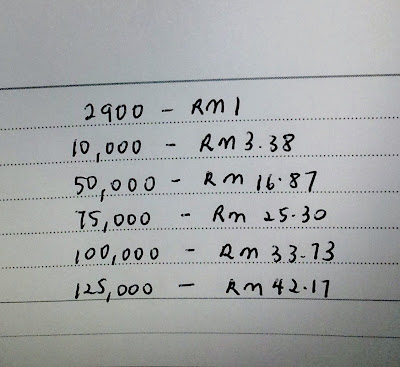 2900 - RM 1
10,000 - RM 3.38
50,000 - RM 16.87
75,000 - RM 25.30
100,000 - RM 33.73
125,000 - RM 42.17